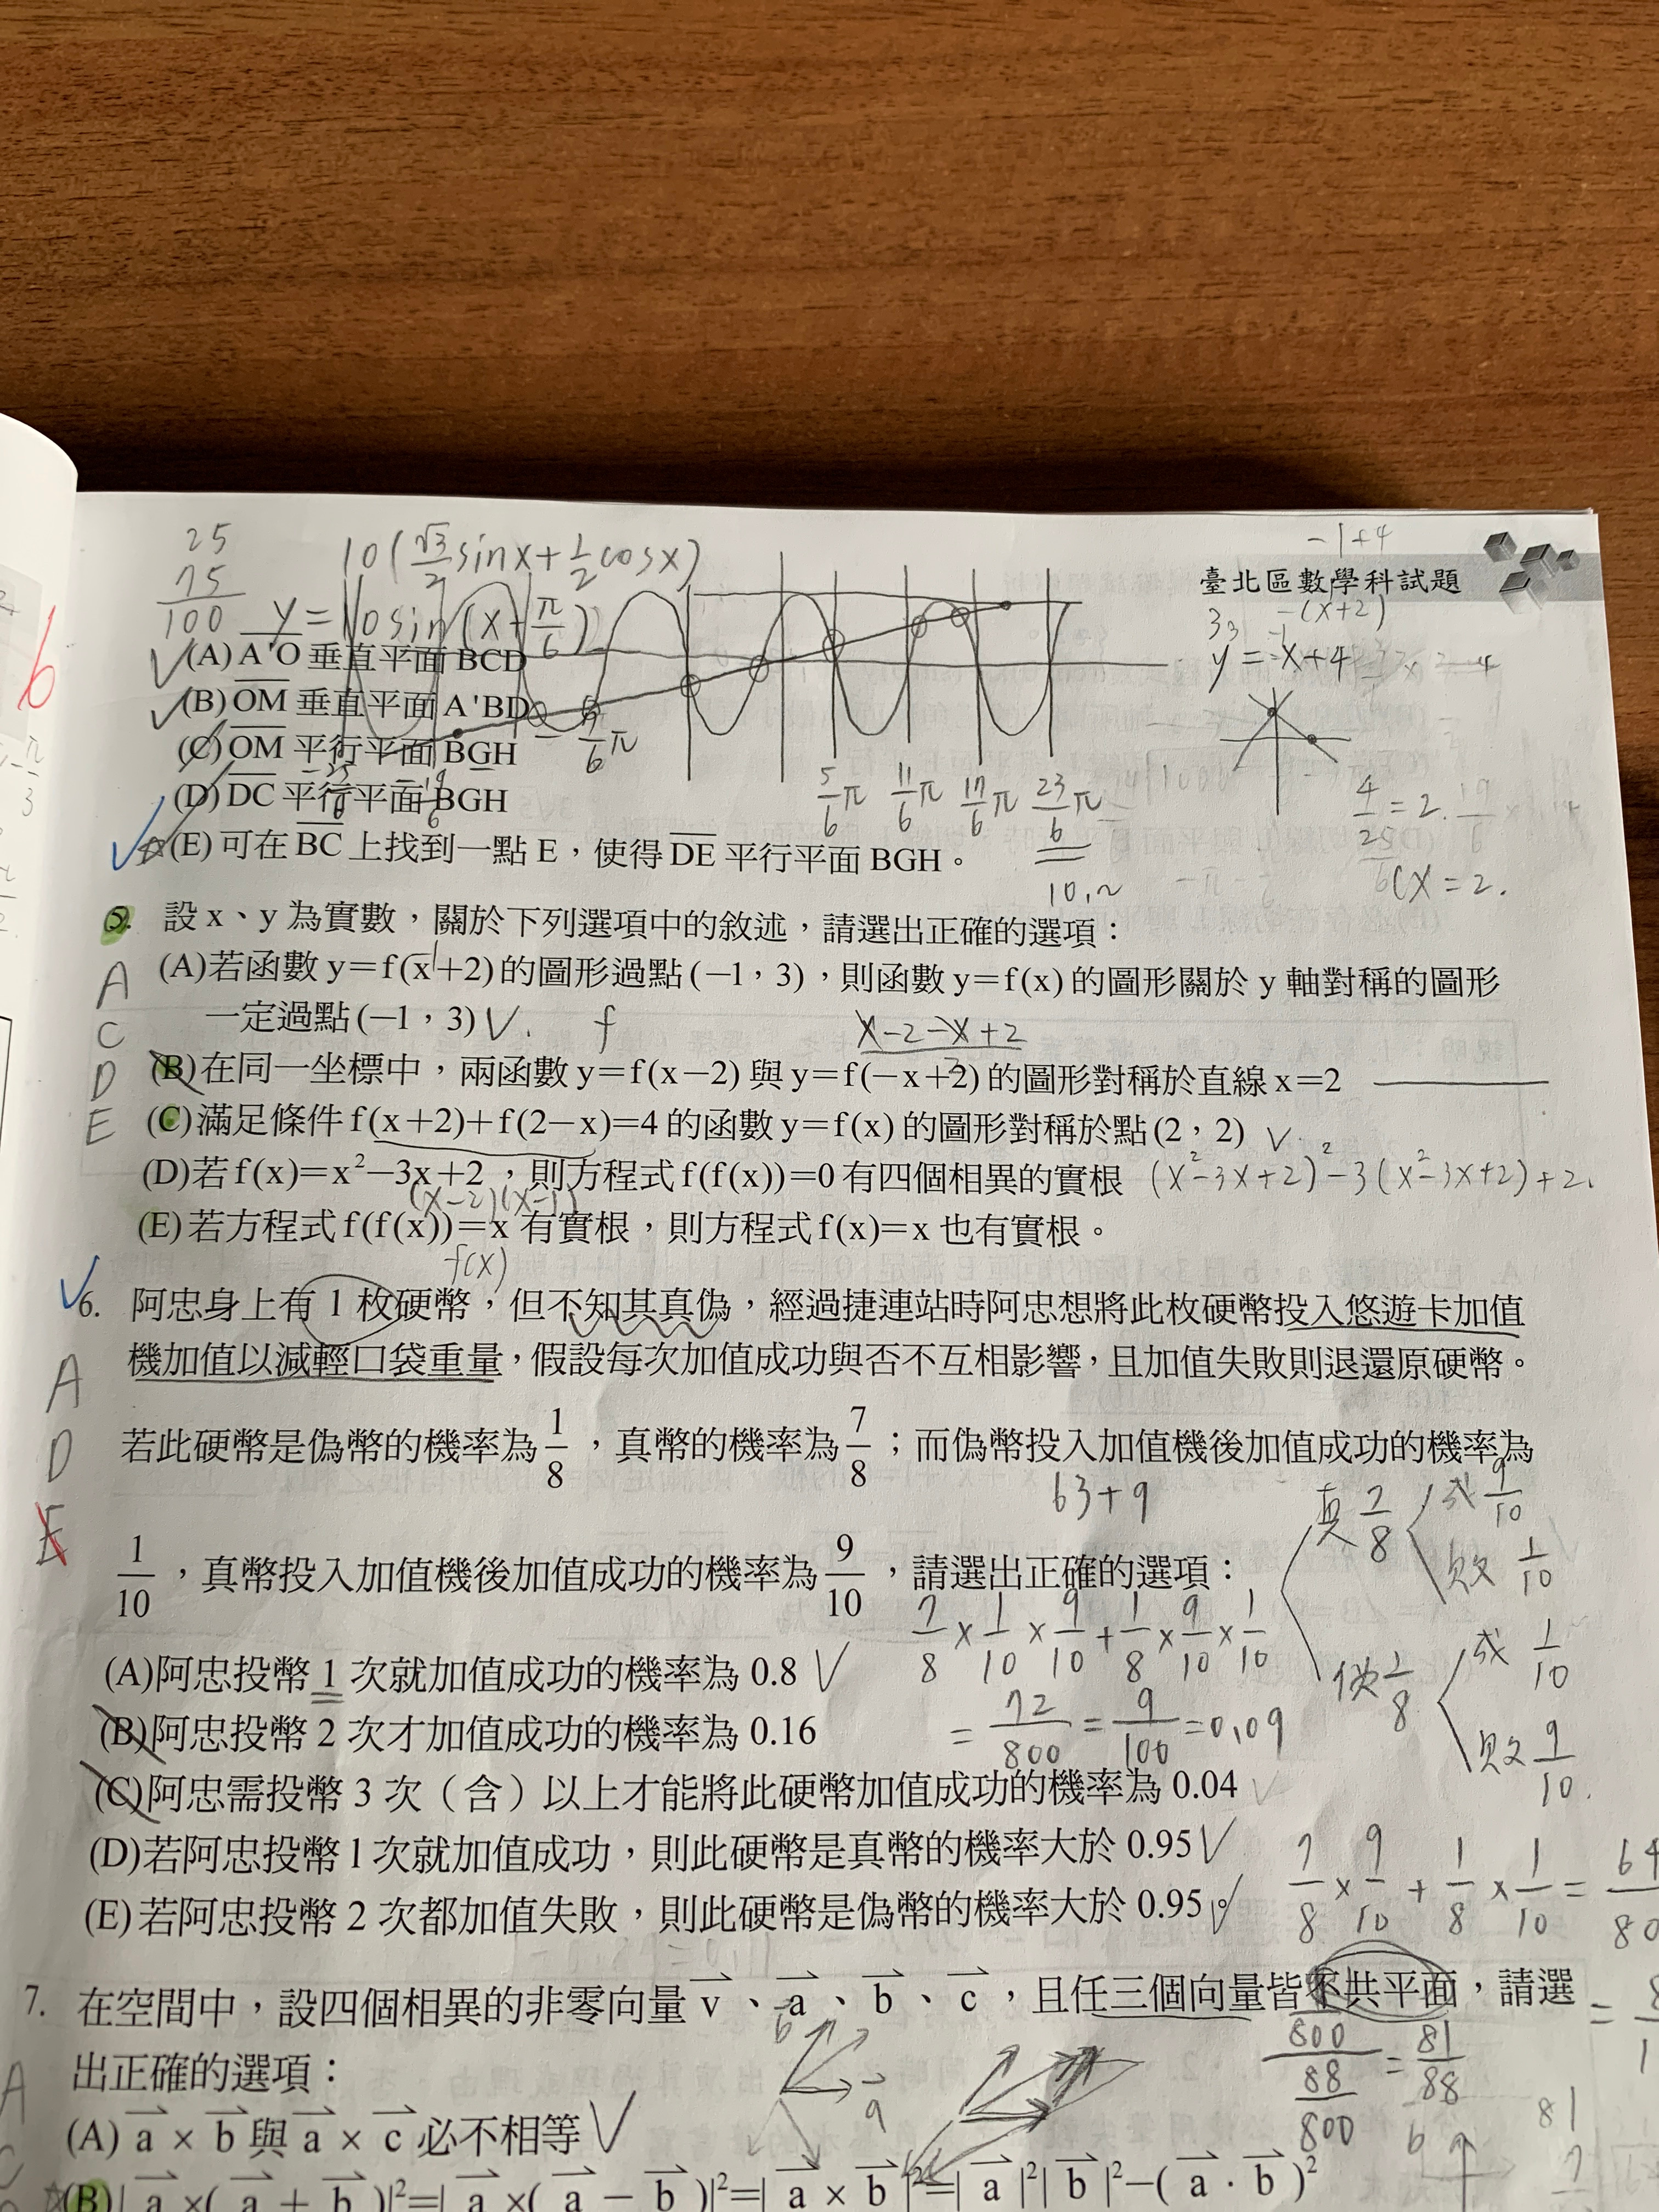 25
75
100
10(√3/2 sinx+1/2 cosx)
y=10sin(x+π/6)
-1+4
臺北區數學科試題
-(x+2)
(A) A'O 垂直平面 BCD
(B) OM 垂直平面 A'BD
(C) OM 平行平面 BGH
(D) DC 平行平面 BGH
5/6π 11/6π 17/6π 23/6π
☆(E) 可在 BC 上找到一點 E，使得 DE 平行平面 BGH。
5. 設 x、y 為實數，關於下列選項中的敘述，請選出正確的選項：
(A)若函數 y=f(x+2)的圖形過點(−1，3)，則函數 y=f(x)的圖形關於 y 軸對稱的圖形
一定過點(−1，3)
x-2-x+2
(B)在同一坐標中，兩函數 y=f(x−2)與 y=f(−x+2)的圖形對稱於直線 x=2
(C)滿足條件 f(x+2)+f(2−x)=4 的函數 y=f(x)的圖形對稱於點(2，2)
(D)若 f(x)=x²−3x+2，則方程式 f(f(x))=0 有四個相異的實根 (x²-3x+2)²-3(x²-3x+2)+2
(x-2)(x-1)
(E)若方程式 f(f(x))=x 有實根，則方程式 f(x)=x 也有實根。
f(x)
A
C
D
E
6. 阿忠身上有 1 枚硬幣，但不知其真偽，經過捷連站時阿忠想將此枚硬幣投入悠遊卡加值
機加值以減輕口袋重量，假設每次加值成功與否不互相影響，且加值失敗則退還原硬幣。
若此硬幣是偽幣的機率為 1/8，真幣的機率為 7/8；而偽幣投入加值機後加值成功的機率為
63+9
1/10，真幣投入加值機後加值成功的機率為 9/10，請選出正確的選項：
真 7/8 成 9/10
敗 1/10
偽 1/8 成 1/10
敗 9/10
7/8×1/10×9/10+1/8×9/10×1/10
=72/800=9/100=0.09
A
D
E
(A)阿忠投幣 1 次就加值成功的機率為 0.8
(B)阿忠投幣 2 次才加值成功的機率為 0.16
(C)阿忠需投幣 3 次（含）以上才能將此硬幣加值成功的機率為 0.04
(D)若阿忠投幣 1 次就加值成功，則此硬幣是真幣的機率大於 0.95
(E)若阿忠投幣 2 次都加值失敗，則此硬幣是偽幣的機率大於 0.95。
7/8×9/10+1/8×1/10=64/80
7. 在空間中，設四個相異的非零向量 v、a、b、c，且任三個向量皆不共平面，請選
出正確的選項：
(A) a × b 與 a × c 必不相等
(B) | a ×( a + b )|²=| a ×( a − b )|²=| a × b |²=| a |²| b |²−( a · b )²